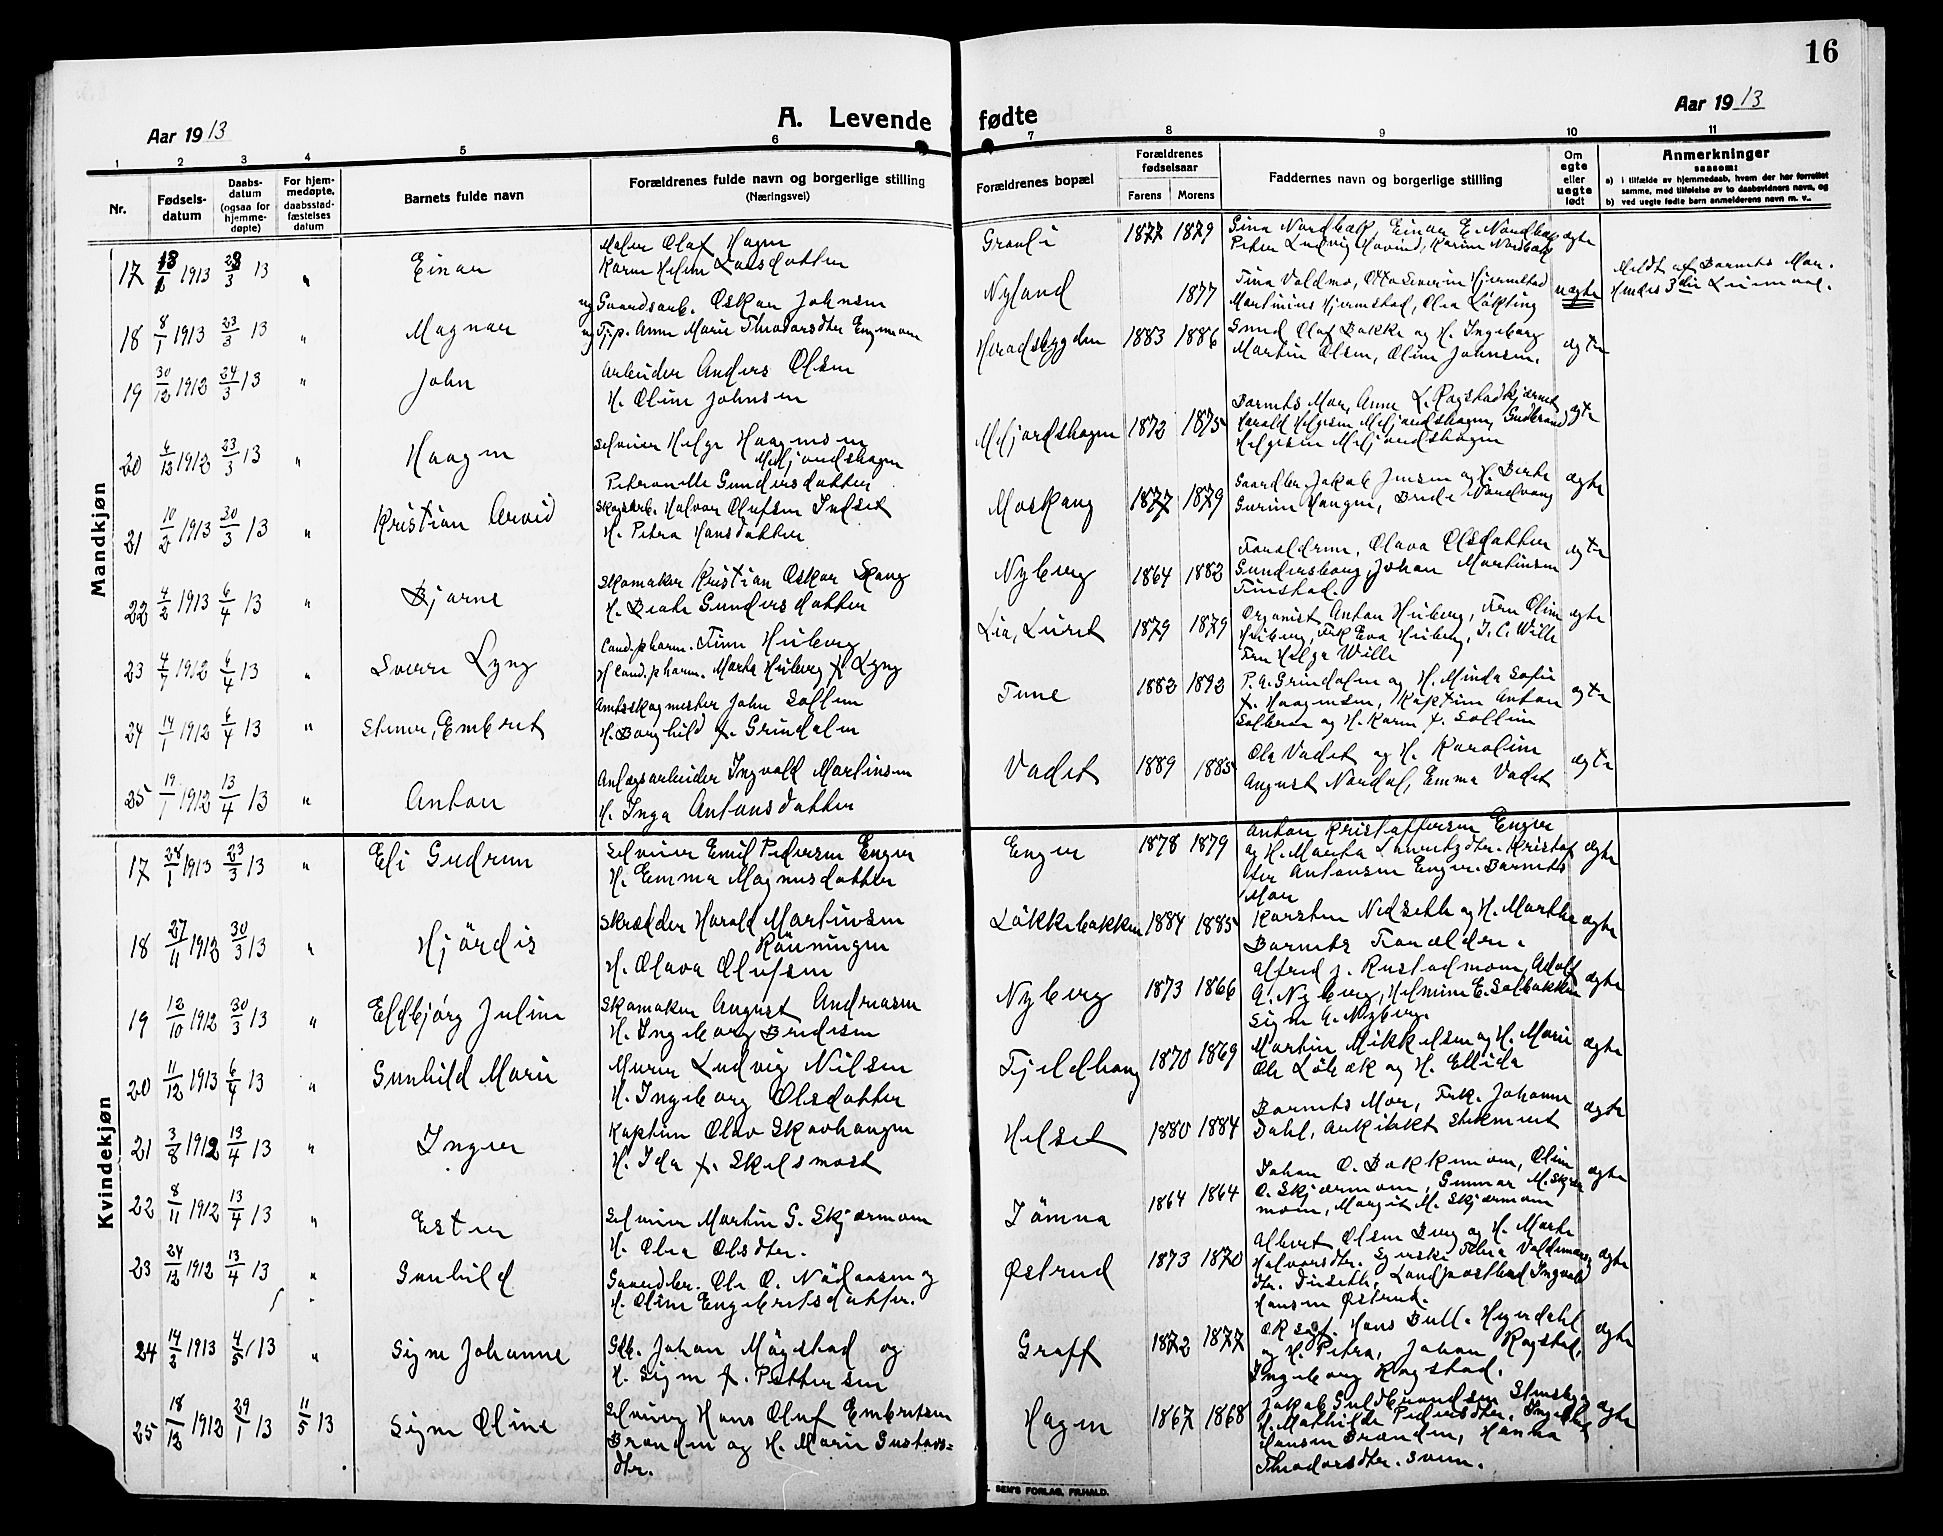 16
Aar 1913
A. Levende fødte
Aar 1913
1 2 3 4 5 6 7 8 9 10 11
Nr.
Fødsels-
datum
Daabs-
datum
(ogsaa for
hjemme-
døpte)
For hjem-
medøpte,
daabsstad-
fæstelses
datum
Barnets fulde navn
Forældrenes fulde navn og borgerlige stilling
(Næringsvei)
Forældrenes bopæl
Forældrenes
fødselsaar
Farens Morens
Faddernes navn og borgerlige stilling
Om
egte
eller
uegte
født
Anmerkninger
saasom:
a) i tilfælde av hjemmedaab, hvem der har forrettet
samme, med tilføielse av to daabsvidners navn, og
b) ved uegte fødte barn anmelderens navn m. v..
Mandkjøn
17 1913 13 " Einar
Maler Olaf Hagen
Karen Helene Larsdatter
Grauli 1877 1879
Gina Nordbæk, Einar E. Nordbæk
Peter Ludvig Hovind, Karine Nordbæk
ægte
18 8/1 1913 23/3 13 " Magnar
ug Gaardsarb. Oskar Johnsen
ug Tjp. Anne Marie Theodorsdtr Engemoen
Nyland 1877
Tina Voldmo, Otto Severin Hjermstad
Martinius Hjermstad, Olea Løkting
uægte
Meldt af Barnets Mor.
Hendes 3die Leiermaal.
19 30/12 1912 24/3 13 " John
Arbeider Anders Olsen
H. Oline Johnsen
Heradsbygden 1883 1886
Gmd Olaf Bakke og H. Ingeborg
Martin Olsen, Oline Johnsen.
ægte
20 6/12 1912 23/3 13 " Haagen
Selveier Helge Haagensen
Meljordshagen
Petronelle Gundersdatter
Meljordshagen 1872 1875
Barnets Mor, Anne L. Rogstadkjernet
Harald Helgesen Meljordshagen, Gudbrand
Helgesen Meljordshagen
ægte
21 10/2 1913 30/3 13 " Kristian Arvid
Skogsarb. Halvor Olufsen Indset
H. Petra Hansdatter
Moskaug 1877 1879
Gaardbr. Jakob Jensen og H. Berte
Gurine Haugen, Brede Nordvang
ægte
22 4/2 1913 6/4 13 " Bjarne
Skomaker Kristian Oskar Skaug
H. Beate Gundersdatter
Nyberg 1864 1882
Forældrene, Olava Olsdatter
Gundersborg, Johan Martinsen
Finstad.
ægte
23 4/7 1912 6/4 13 " Sverre Lyng
Cand. pharm. Finn Heiberg
H Cand. pharm. Marta Heiberg f. Lyng
Lia, Luret 1879 1879
Organist Anton Heiberg, Fru Oline
Heiberg, Frk Eva Heiberg, J. C. Wille
Fru Helga Wille
ægte
24 14/1 1912 6/4 13 " Steinar, Embret
Amtsskogmester John Sollien
H. Borghild f. Grindalen
Tune 1882 1892
P. A. Grindalen og H. Minda Sofie
f. Haagensen, Kaptein Anton
Solberg og H. Karen f. Sollien
ægte
25 19/1 1912 13/4 13 " Anton
Anlægsarbeider Ingvald Martinsen
H. Inga Antonsdatter
Vadet 1889 1885
Ole Vadet og H. Karoline
August Nordal, Emma Vadet
ægte
Kvindekjøn
17 28/1 1913 23/3 13 " Eli Gudrun
Selveier Emil Pedersen Enger
H. Emma Magnusdatter
Enger 1878 1879
Anton Kristoffersen Enger
og H. Marta Lauritzdtr. Kristof
fer Antonsen Enger. Barnets
Mor
ægte
18 27/11 1912 30/3 13 " Hjørdis
Skrædder Harald Martinsen
Rønningen
H. Olava Olufsen
Løkkebakken 1884 1885
Karsten Nedseth og H. Marthe
Barnets Forældre.
ægte
19 12/10 1912 30/3 13 " Eldbjørg Juline
Skomaker August Andreasen
H. Ingeborg Bredesen
Nyberg 1873 1866
Alfred J. Rustadmoen, Adolf
A. Nyberg, Helmine E. Solbakken
Signe A. Nyberg.
ægte
20 11/12 1913 6/4 13 " Gunhild Marie
Murer Ludvig Nilsen
H. Ingeborg Olsdatter
Fjeldhaug 1870 1869
Martin Mikkelsen og H. Marie
Ole Løbæk og H. Ellida
ægte
21 3/8 1912 13/4 13 " Inger
Kaptein Olav Skavhaugen
H. Ida f. Skelsmost
Helset 1880 1884
Barnets Mor, Frk. Johanne
Dahl, Arkitekt Stekmest
ægte
22 8/11 1912 13/4 13 " Ester
Selveier Martin G. Skjærmoen
H. Olea Olsdtr.
Jømna 1864 1864
Johan O. Bakkemoen, Oline
O. Skjærmoen, Gunnar M. Skjær
moen, Margit M. Skjærmoen
ægte
23 24/12 1912 13/4 13 " Gunhild
Gaardbr. Ole O. Nødaasen og
H. Oline Engebretsdatter.
Østrud 1873 1870
Albert Olsen Berg og H. Marte
Halvorsdtr. Gjerske Thea Valdemars
dtr. Diseth, Landpostbud Ingvald
Hansen Østrud.
ægte
24 14/3 1913 4/5 13 " Signe Johanne
Gbr. Johan Møystad og
H. Signe f. Pettersen
Graff 1872 1877
OKsgf. Hans Bull-Hejerdahl
og H. Petra, Johan Rogstad,
Ingeborg Rogstad.
ægte
25 18/12 1912 29/1 13 11/5 13 Signe Oline
Selveier Hans Oluf Embretsen
Branden og H. Marie Gustavs-
dtr.
Hagen 1867 1868
Jakob Guldbrandsen Stensby
H. Mathilde Pedersdtr. Ingeborg
Hansen Branden, Hanna
Theodorsdtr. Sveen.
ægte
SEM'S FORLAG, FR.HALD.